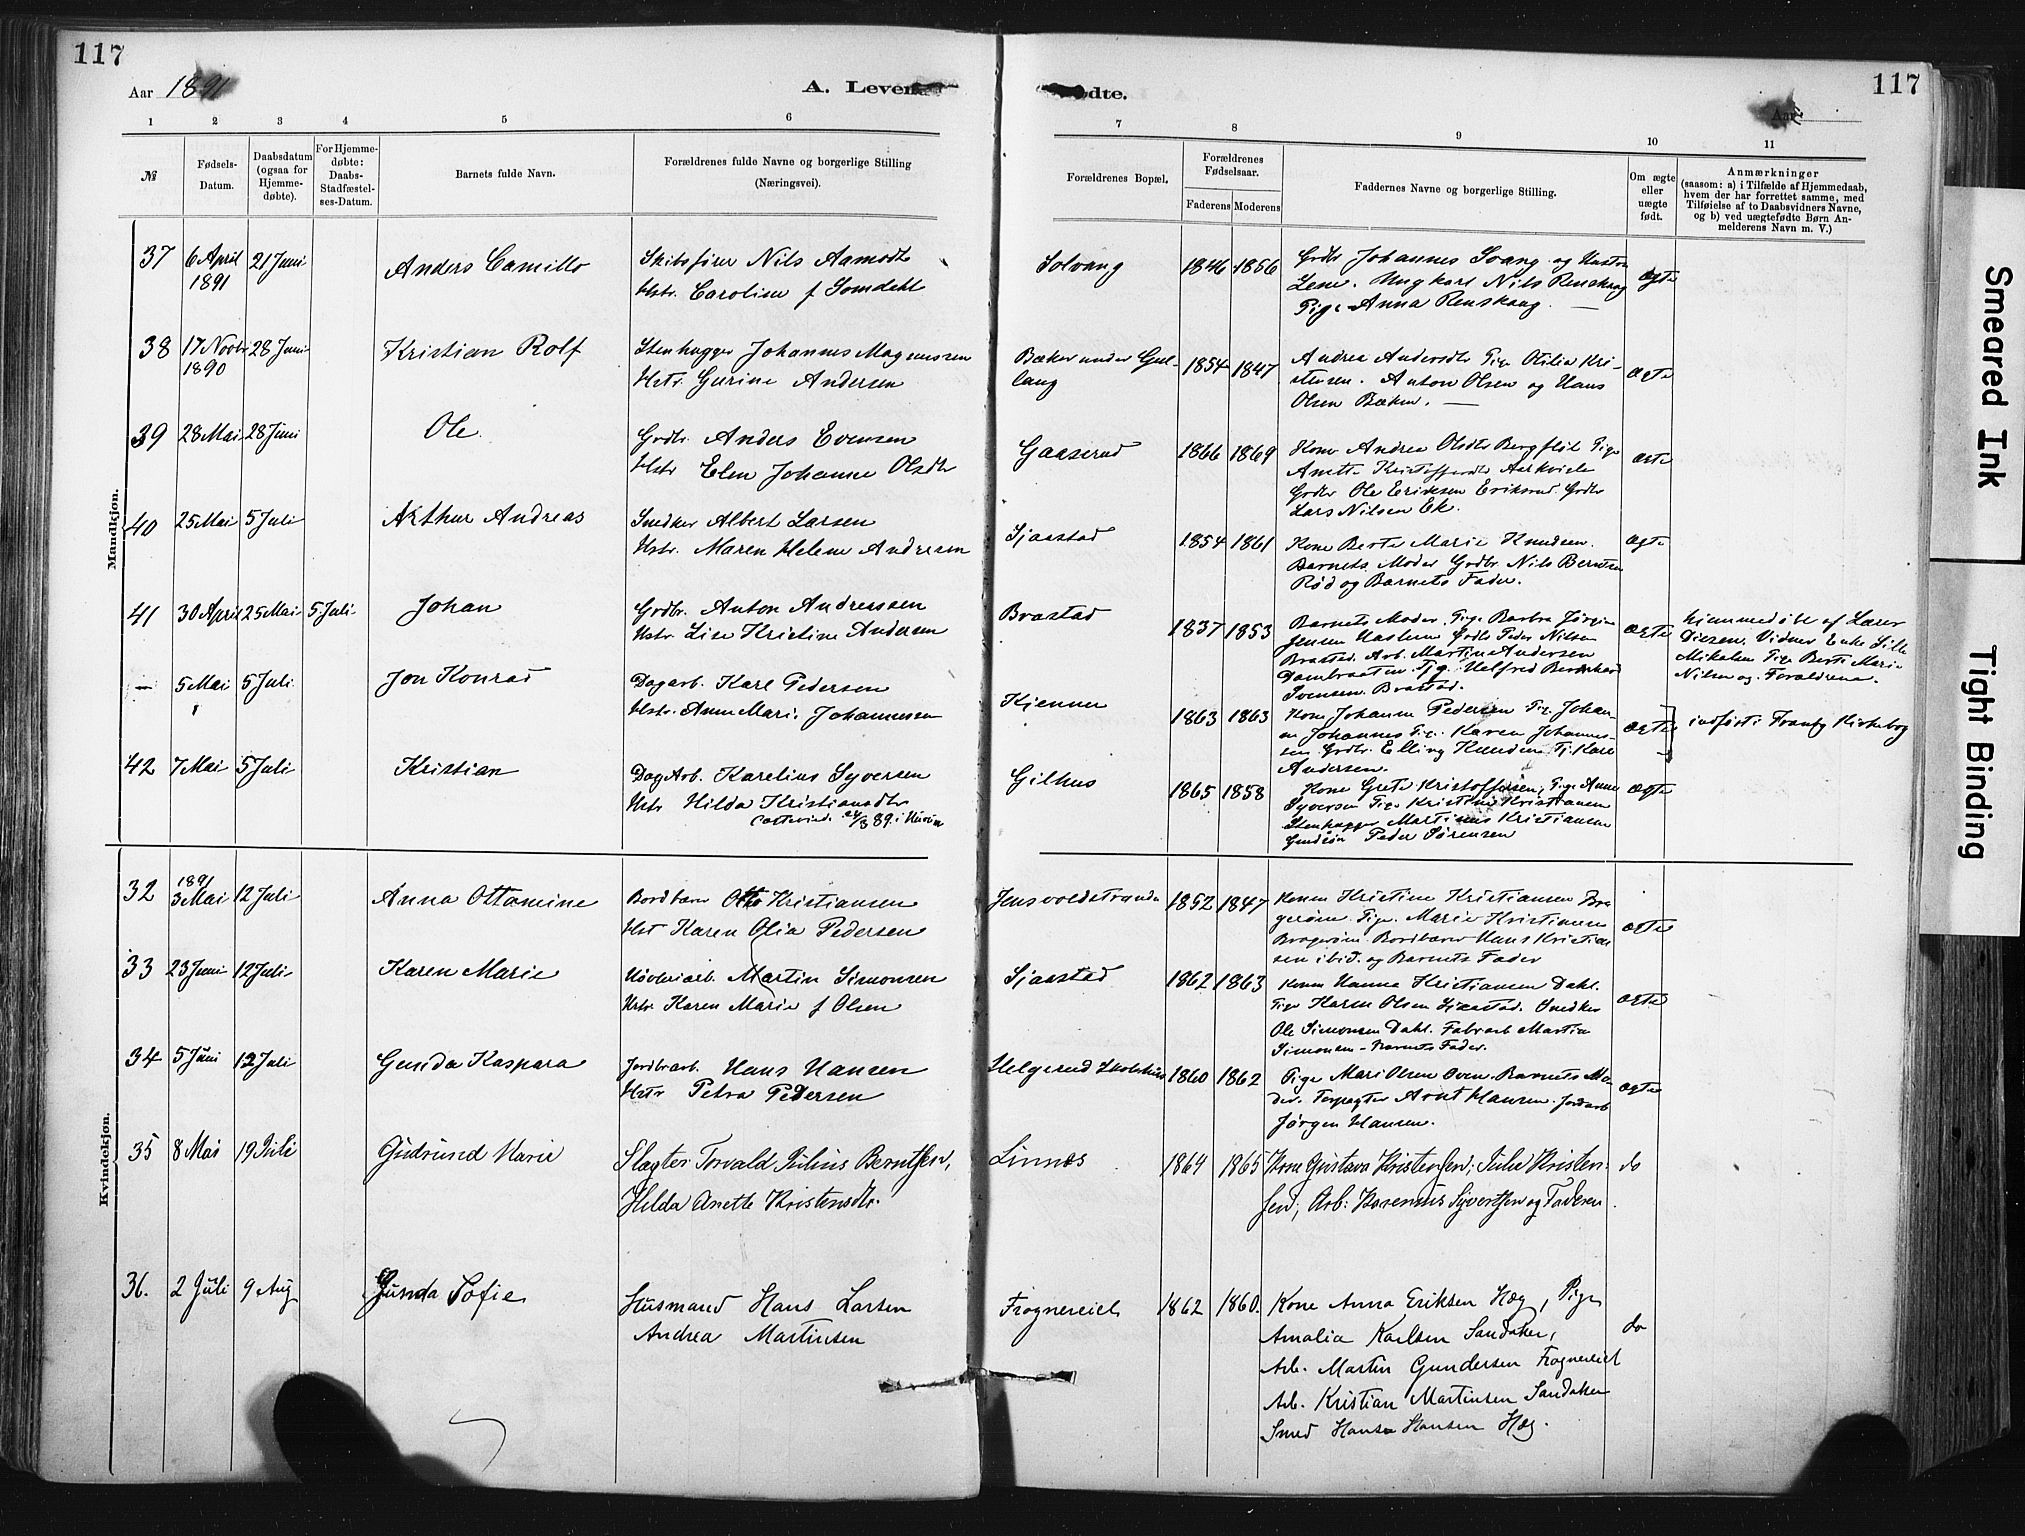 117
117
Aar 1891
A. Levende
Fødte.
Aar
1 2 3 4 5 6 7 8 9 10 11
№
Fødsels-Datum.
Daabsdatum (ogsaa for Hjemme-døbte).
For Hjemme-døbte: Daabs-Stadfæstel-ses-Datum.
Barnets fulde Navn.
Forældrenes fulde Navne og borgerlige Stilling
(Næringsvei).
Forældrenes Bopæl.
Forældrenes Fødselsaar.
Faderens Moderens
Faddernes Navne og borgerlige Stilling.
Om ægte eller uægte født.
Anmærkninger
(saasom: a) i Tilfælde af Hjemmedaab,
hvem der har forrettet samme, med
Tilføielse af to Daabsvidners Navne,
og b) ved uægtefødte Børn An-
melderens Navn m. V.)
Mandkjøn.
37 6 April 1891 21 Juni Anders Camillo
Skibsfører Nils Aamodt
Hstr. Caroline f Somdahl
Solvang 1846 1856
Grdbr Johannes Svang og Hustru
Lene. Ungkarl Nils Renskaug
Pige Anna Renskaug. —
ægte
38 17 Novbr 1890 28 Juni Kristian Rolf
Stenhugger Johannes Magnussen
Hstr. Gurine Andersen
Bæker under Gul-
laug 1854 1847
Andrea Andersdtr Pige Otilia Kri-
stensen. Anton Olsen og Hans
Olsen Bæken. —
ægte
39 28 Mai 28 Juni Ole
Grdbr. Anders Evensen
Hstr Elen Johanne Olsdtr
Gaaserud 1866 1869
Kone Andrea Olsdtr Bergflöt Pige
Anette Kristoffersdtr
Grdbr Ole Eriksen Eriksrud Grdbr
Lars Nilsen Ek.
ægte
40 25 Mai 5 Juli Arthur Andreas
Snedker Albert Larsen
Hstr. Maren Helene Andresen
Sjaastad 1854 1861
Kone Berte Marie Knudsen.
Barnets Moder Grdbr. Nils Berntsen
Rød og Barnets Fader.
ægte
41 30 April 25 Mai 5 Juli Johan
Grdbr. Anton Andreassen
Hstr Lise Kristine Andersen
Brastad 1837 1853
Barnets Moder. Pige Barbra Jørgine
Jensen Grdbr Peder Nilsen
Brastad. Arb. Martin Andersen
Dambraaten. Pig. Helfred Bernhard
Svensen. Brastad.
ægte
hjemmedøbt af Lærer
Diesen. Vidner Enke Sille
Mikalsen Pige Berte Marie
Nilsen og Forældrene.
— 5 Mai 5 Juli Jon Konrad
Dagarb. Karl Pedersen
Hstr. Anne Marie Johannesen
Kjenner 1863 1863
Kone Johanne Pedersen Pig. Johan-
ne Johannes Pig. Karen Johannes-
sen Grdbr. Elling Knudsen Tj. Karl
Andersen.
ægte
indført i Tranby Kirkebog
42 7 Mai 5 Juli Kristian
DagArb. Karelius Syversen
Hstr Hilda Kristiansdtr
Gilhus 1865 1858
Kone Grete Kristoffersen, Pige Anne
Syversen Pige Kristine Kristiansen
Stenhugger Martinus Kristiansen
Peder Sørensen
ægte
Kvindekjøn.
32 1891 3 Mai 12 Juli Anna Ottomine
Bordbærer Otto Kristiansen
Hst Karen Olia Pedersen
Jensvoldstranda 1852 1847
Konen Kristine Kristiansen Bra
gerøen. Pige. Marie Kristiansen
Bragerøen. Bordbærer Hans Kristian
sen ibid. og Barnets Fader
ægte
33 23 Juni 12 Juli Karen Marie
Høvleriarb. Martin Simonsen
Hstr. Karen Marie f Olsen
Sjaastad 1862 1863
Konen Hanna Kristiansen Dahl.
Pige Karen Olsen Sjaastad. Snedker
Ole Simonsen Dahl. Fabrarb Martin
Simonsen – Barnets Fader.
ægte
34 5 Juni 12 Juli Gunda Kaspara
Jordbrarb. Hans Hansen
Hstr Petra Pedersen
Helgerud Skolehus 1860 1862
Pige Mari Olsen Oven. Barnets Mo
der. Forpagter Arnt Hansen. Jordarb
Jørgen Hansen.
ægte
35 8 Mai 19 Juli Gudrund Marie
Slagter Torvald Julius Berntsen,
Hilda Anette Kristensdtr.
Linnes 1864 1865
Kone Gustava Kristensen, Julie Kristen-
sen, Arb: Karenius Syvertsen og Faderen.
do
36. 2 Juli 9 Aug Gunda Sofie
Husmand Hans Larsen
Andrea Martinsen
Frognereiet 1862 1860.
Kone Anna Eriksen Hæg, Pige
Amalia Karlsen Sandaker,
Arb. Martin Gundersen Frognereiet
Arb. Kristian Martinsen Sandaker
Smed Hans Hansen Hæg.
do
Smeared Ink
Tight Binding